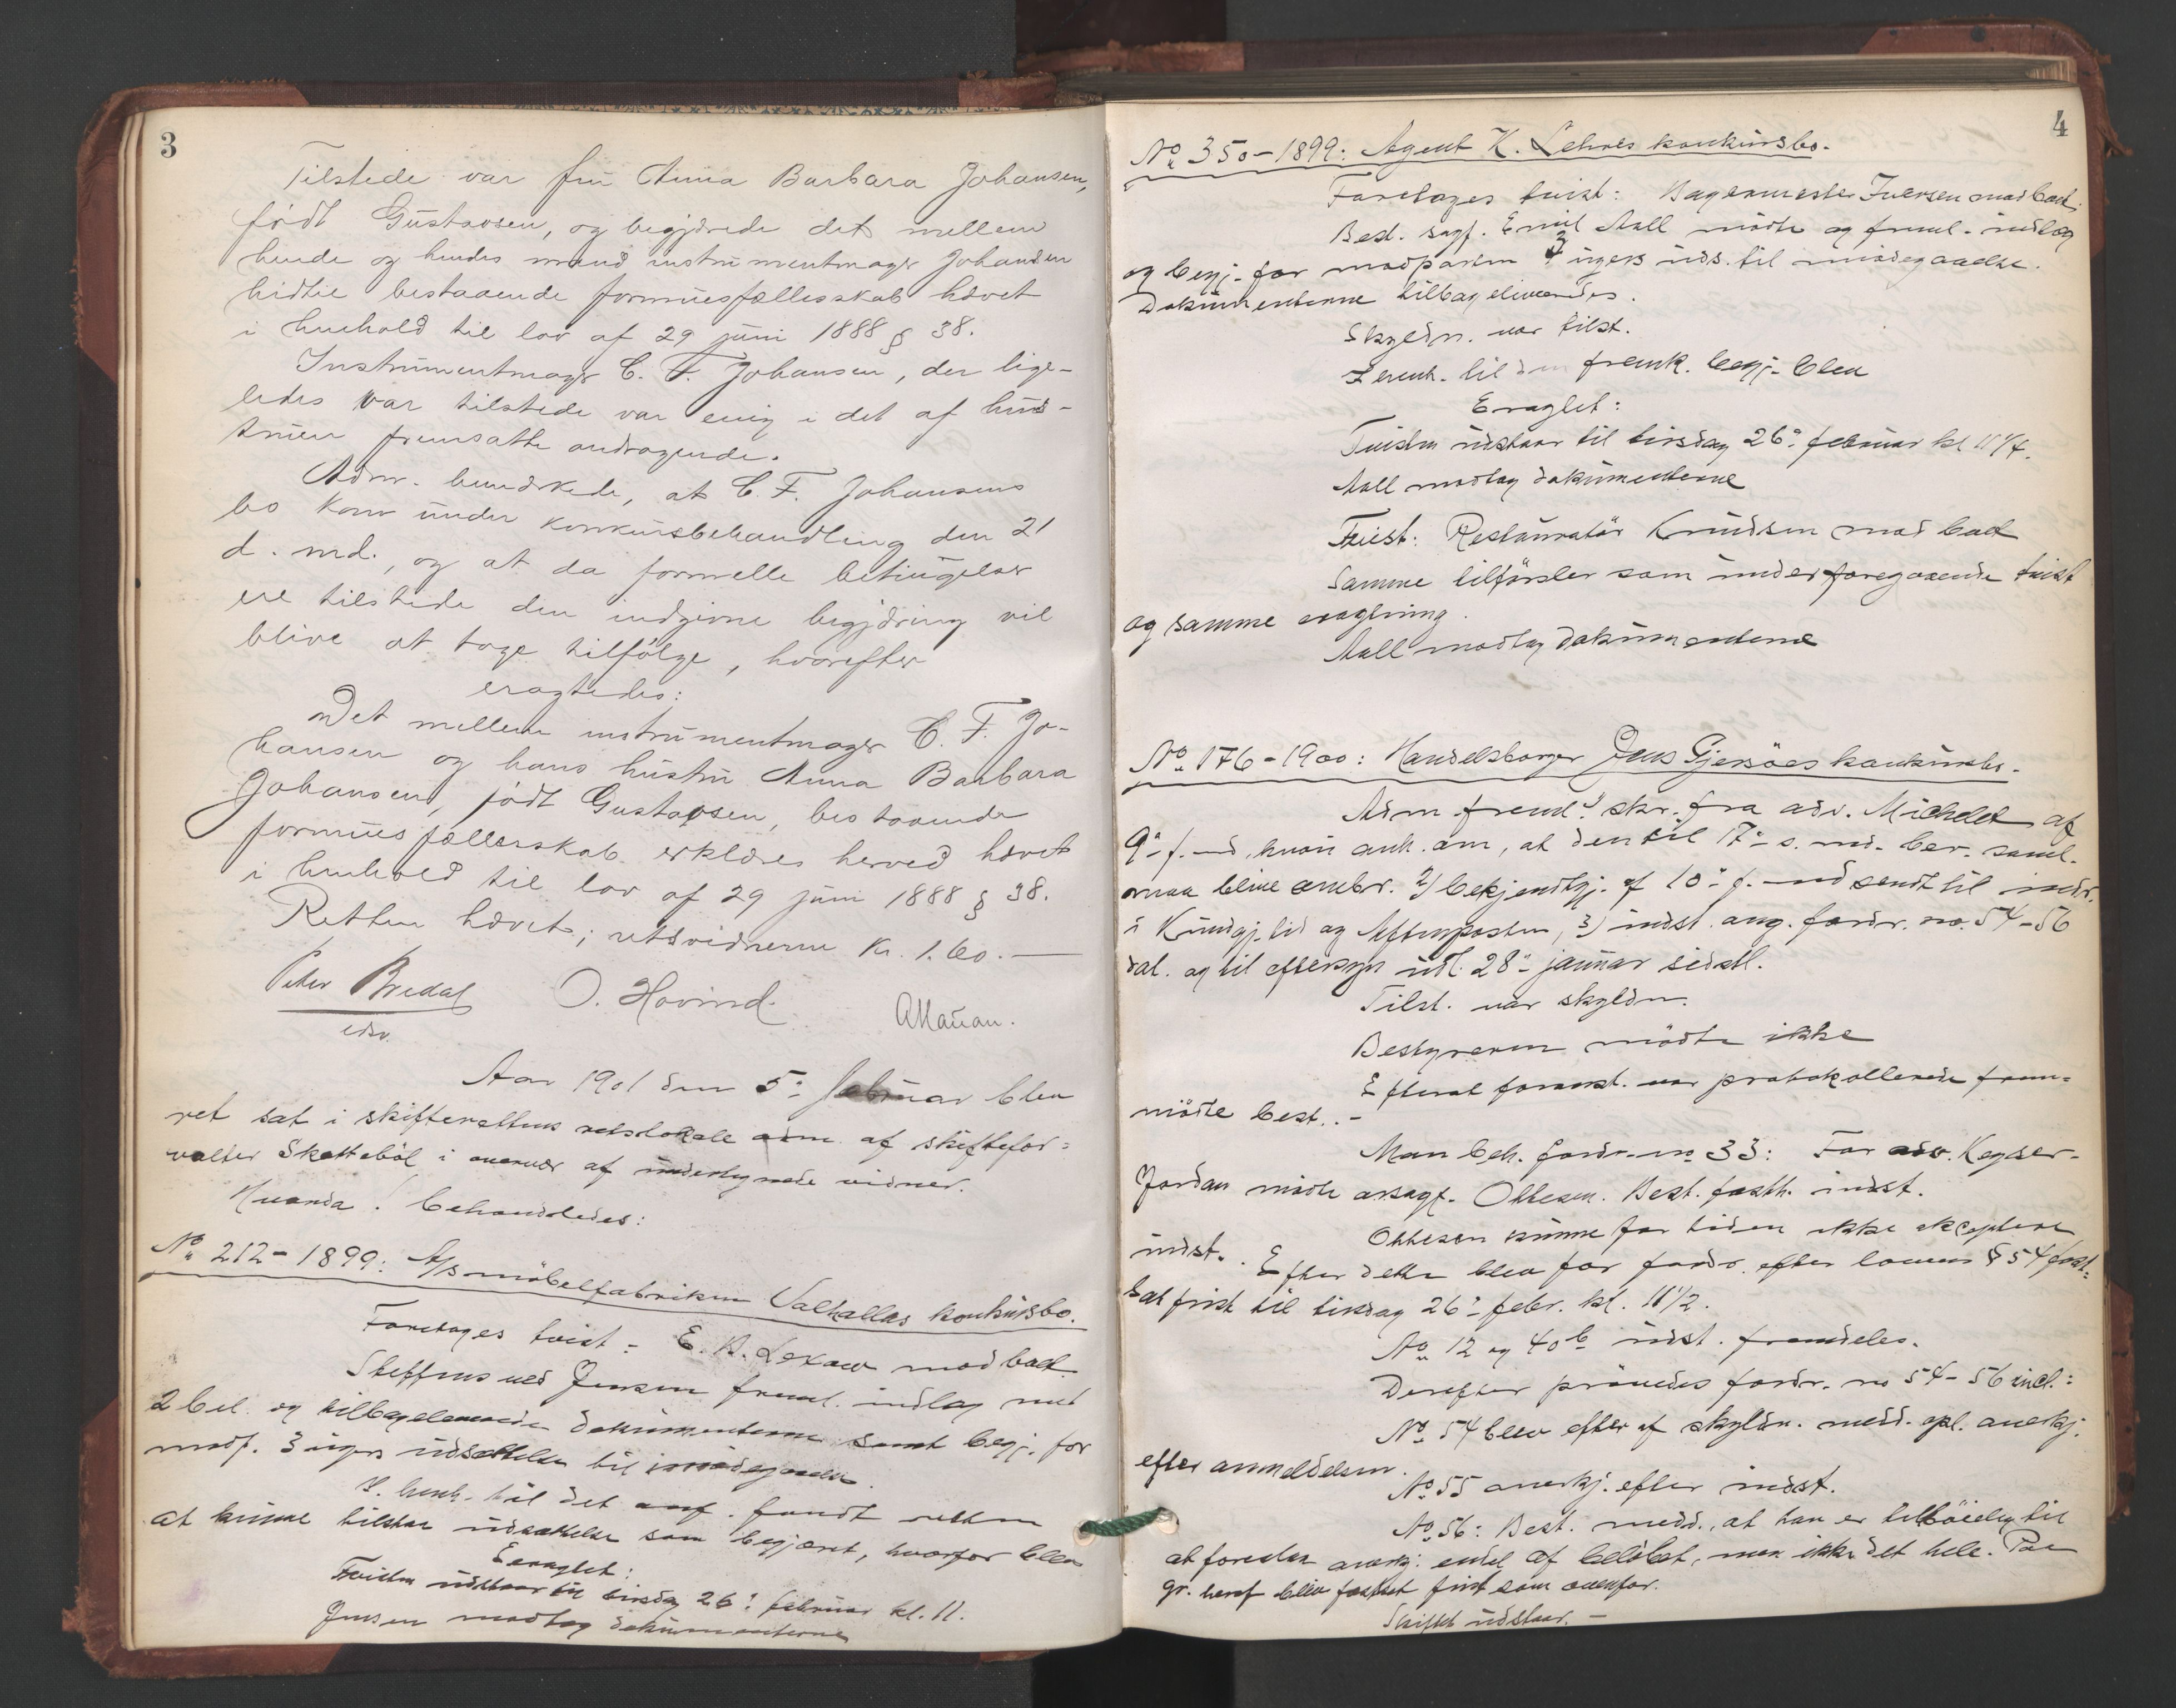 3
Tilstede var fru Anna Barbara Johansen,
født Gustavsen, og begjærede det mellem
hende og hendes mand instrumentmager Johansen
hidtil bestaaende formuesfællesskab hævet
i henhold til lov af 29 juni 1888 § 38.
Instrumentmager C. F. Johansen, der lige-
ledes var tilstede var enig i det af hus-
truen fremsatte andragende.
Adm. bemærkede, at C. F. Johansens
bo kom under konkursbehandling den 21
d. md., og at da formelle betingelser
ere tilstede den indgivne begjæring vil
blive at tage tilfølge, hvorefter
eragtedes:
Det mellem instrumentmager C. F. Jo-
hansen og hans hustru Anna Barbara
Johansen, født Gustavsen, bestaaende
formuesfællesskab erklæres herved hævet
i henhold til lov af 29 juni 1888 § 38.
Retten hævet; retsvidnerne kr. 1.60.
Peter Bredal O. Hovind.
edsv.
Aar 1901 den 5: februar blev
ret sat i skifterettens retslokale adm. af skiftefor-
valter Skattebøl i overvær af undertegnede vidner.
Hvorda! behandledes:
No. 212 - 1899: A/S møbelfabriken Valhallas konkursbo.
Foretages tvist: E. A. Lexaw mod boet.
Steffens ved Jensen freml. indlæg med
2 bil. og tilbageleverede dokumenterne samt begj. for
modp. 3 ugers udsættelse til imødegaaelse.
I henh. til det anf. fandt retten
at kunne tilstaa udsættelse som begjæret, hvorfor blev
Eeragtet:
Tvisten udstaar til tirsdag 26: februar kl. 11.
Jensen modtog dokumenterne
4
No. 350 - 1899: Agent K. Lehnes konkursbo.
Foretages tvist: Bagermester Iversen mod boet.
Best. sagf. Emil Aall mødte og freml. indlæg
og begj. for modparten 3 ugers uds. til imødegaaelse.
Dokumenterne tilbageleveredes.
Skyldn. var tilst.
I henh. til den fremk. begj. blev
Eragtet:
Tvisten udstaar til tirsdag 26: februar kl 11 1/4.
Aall modtog dokumenterne
Tvist: Restauratør Knudsen mod boet
Samme tilførsler som under foregaaende tvist
og samme eragtning.
Aall modtog dokumenterne
No. 176 - 1900: Handelsborger Jens Gjersøes konkursbo.
Adm. freml. 1) skr. fra adv. Michelet af
9: f. md., hvori anh. om, at den til 17: s. md. ber. saml.
maa blive ombr. 2) bekjendtgj. af 10: f. md sendt til indr.
i Kundgj.tid og Aftenposten, 3) indst. ang. fordr. no. 54-56
dat. og til eftersyn udl. 28: januar sidstl.
Tilst. var skyldn.
Bestyreren mødte ikke
Efterat foranst. var protokolleret frem-
mødte best. . -
Man beh. fordr. no 33: For adv. Keyser-
Jordan mødte orsagf. Ottesen. Best. fasth. indst.
Ottesen kunne for tiden ikke akceptere
indst. . Efter dette blev for fordr. efter lovens § 54 fast-
sat frist til tirsdag 26: febr. kl. 11 1/2.
No. 12 og 40 b udst. fremdeles.
Derefter prøvedes fordr. no 54-56 incl.:
No. 54 blev efter af skyldn. medd. opl. anerkj.
efter anmeldelsen.
No. 55 anerkj. efter indst.
No. 56: Best. medd., at han er tilbøielig til
at foreslaa anerkj. endel af beløbet, men ikke det hele. Paa
gr. heraf blev fastsat frist som ovenfor.
Skiftet udstaar. -